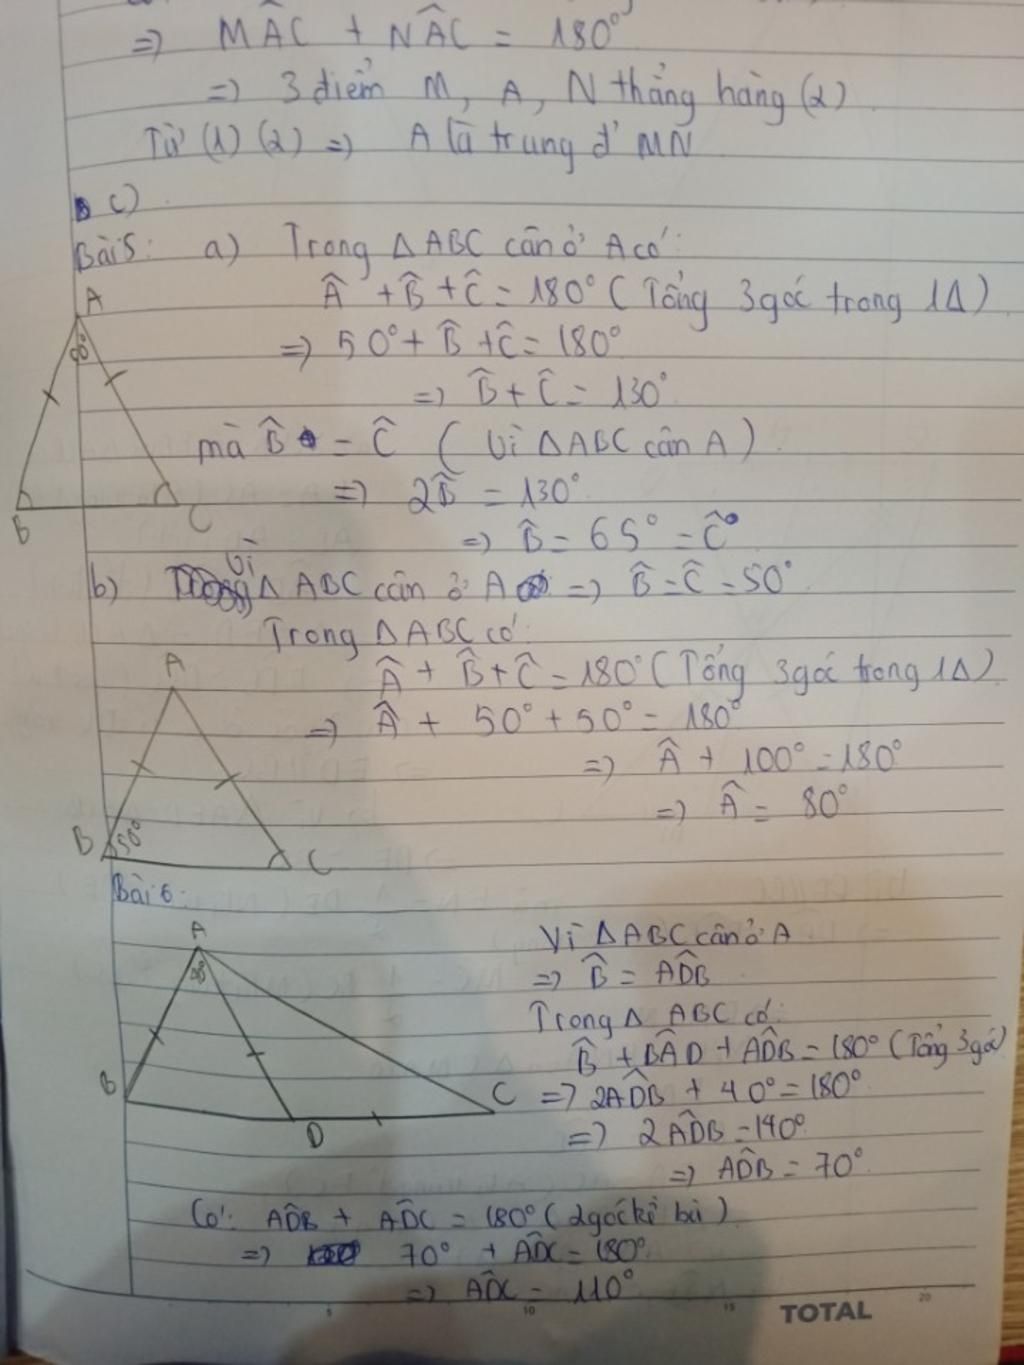 => MÂC + NÂC = 180°
=> 3 điểm M, A, N thẳng hàng (2)
Từ (1) (2) => A là trung đ' MN
c)
Bài 5: a) Trong △ABC cân ở A có:
Â + B̂ + Ĉ = 180° (Tổng 3 góc trong 1△)
=> 50° + B̂ + Ĉ = 180°
=> B̂ + Ĉ = 130°
mà B̂ = Ĉ (Vì △ABC cân A)
=> 2B̂ = 130°
=> B̂ = 65° = Ĉ
A
B
C
b) Vì △ABC cân ở A => B̂ = Ĉ = 50°
Trong △ABC có:
Â + B̂ + Ĉ = 180° (Tổng 3 góc trong 1△)
=> Â + 50° + 50° = 180°
=> Â + 100° = 180°
=> Â = 80°
A
B 50° C
Bài 6:
A
B
D
C
Vì △ABC cân ở A
=> B̂ = AD̂B
Trong △ ABC có:
B̂ + BÂD + AD̂B = 180° (Tổng 3 góc)
=> 2AD̂B + 40° = 180°
=> 2AD̂B = 140°
=> AD̂B = 70°
Có: AD̂B + AD̂C = 180° (2 góc kề bù)
=> 70° + AD̂C = 180°
=> AD̂C = 110°
5 10 15 20
TOTAL